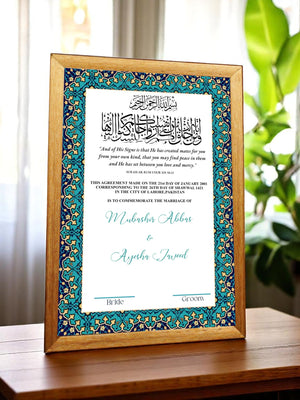 بسم الله الرحمن الرحيم
"And of His Signs is that He has created mates for you
from your own kind, that you may find peace in them
and He has set between you love and mercy."
THIS AGREEMENT MADE ON THE 21st DAY OF JANUARY 2001
CORRESPONDING TO THE 26TH DAY OF SHAWAL 1421
IN THE CITY OF LAHORE,PAKISTAN
IS TO COMMEMORATE THE MARRIAGE OF
Mubashir Abbas
&
Ayesha Javeed
Bride
Groom